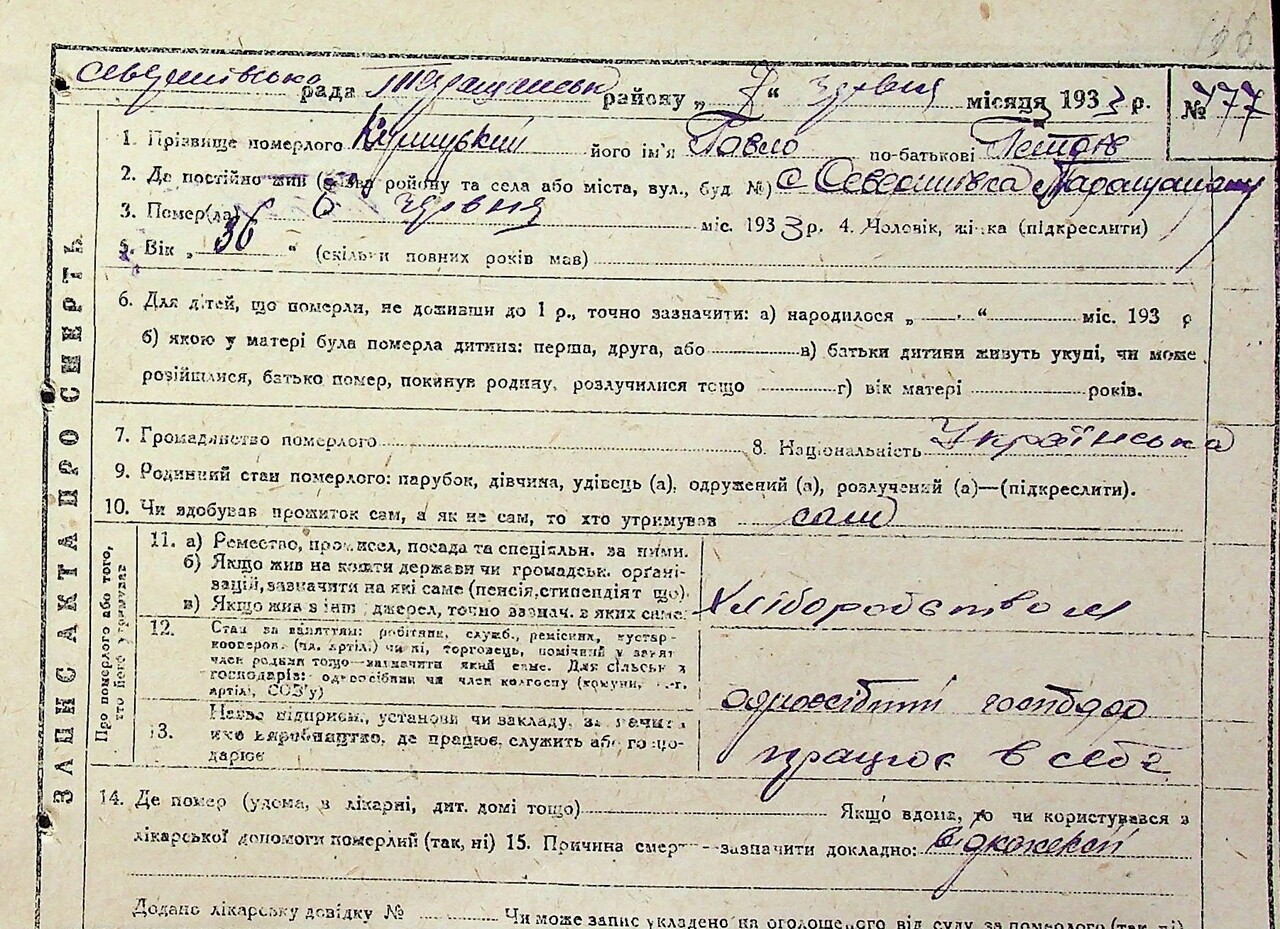 166
Северинівська рада Таращанськ району „ 7 “ червня місяця 1933 р. № 177
1. Прізвище померлого його ім'я Павло по-батькові
2. Де постійно жив (назва району та села або міста, вул., буд №) с Северинівка Таращанську
3. Помер(ла) 6 червня міс. 1933 р. 4. Чоловік, жінка (підкреслити)
5. Вік „ 36 “ (скільки повних років мав)
6. Для дітей, що померли, не доживши до 1 р., точно зазначити: а) народилося „ “ міс. 193 р
б) якою у матері була померла дитина: перша, друга, або в) батьки дитини живуть укупі, чи може
розійшлися, батько помер, покинув родину, розлучилися тощо г) вік матері років.
7. Громадянство померлого 8. Національність Українська
9. Родинний стан померлого: парубок, дівчина, удівець (а), одружений (а), розлучений (а)—(підкреслити).
10. Чи здобував прожиток сам, а як не сам, то хто утримував сам
ЗАПИС АКТА ПРО СМЕРТЬ
Про померлого або того,
хто його утримував
11. а) Ремество, промисел, посада та спеціяльн. за ними.
б) Якщо жив на кошти держави чи громадськ. орґані-
зацій, зазначити на які саме (пенсія, стипендіят що).
в) Якщо жив з інш джерел, точно зазнач. з яких саме
хліборобством
12. Стан за заняттям: робітник, служб., ремісник, кустар-
кооперов. (чл. артілі) чи ні, торговець, помічний у занят
член родини тощо—зазначити який саме. Для сільськ х
господарів: одноосібник чи член колгоспу (комуни,
артілі, СОЗ'у)
одноосібний господар
13. Назва підприєм., установи чи закладу, зазначи
яке виробництво, де працює, служить або госпо-
дарює
працює в себе
14. Де помер (удома, в лікарні, дит. домі тощо) Якщо вдома, то чи користувався з
лікарської допомоги померлий (так, ні) 15. Причина смерт зазначити докладно:
Додано лікарську довідку № Чи може запис укладено на оголошеного від суду за померлого (так, ні)